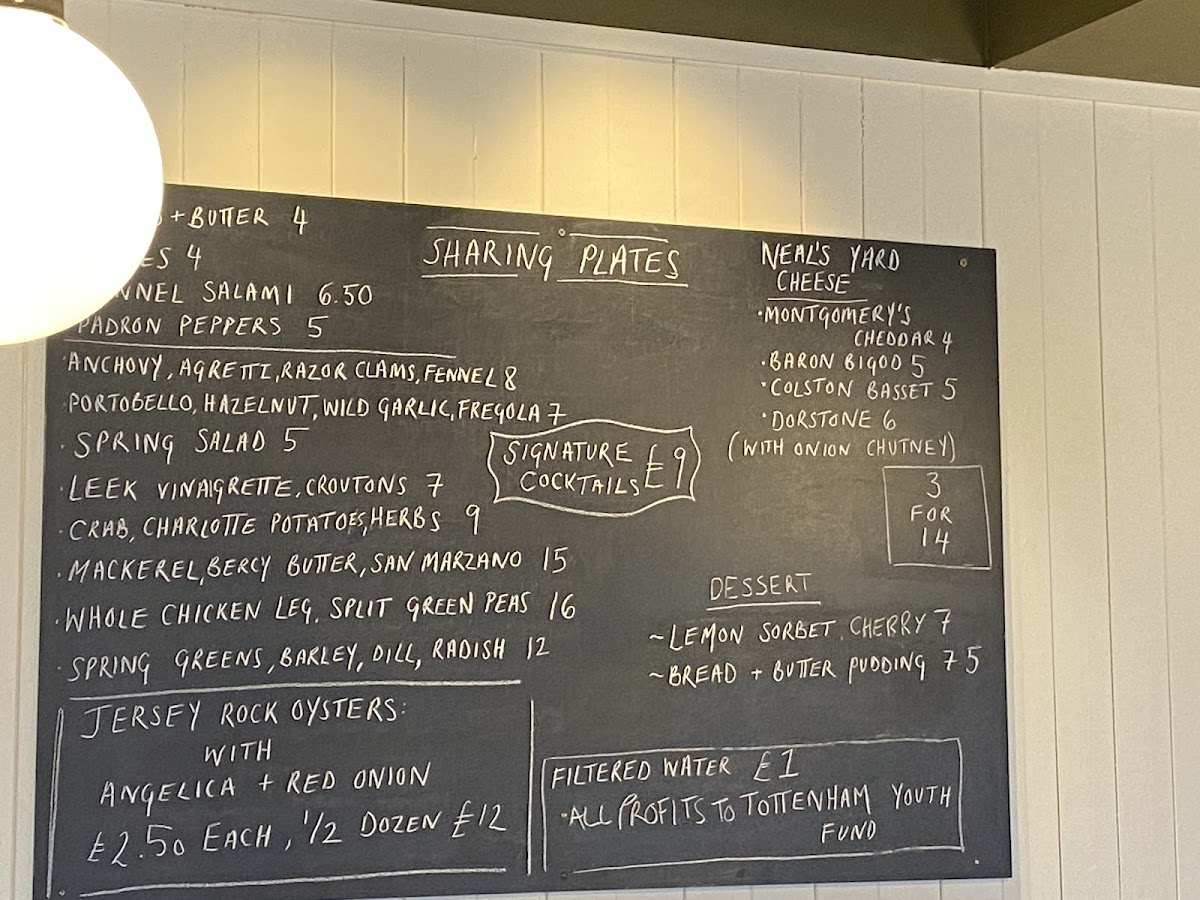 + BUTTER 4
4
SALAMI 6.50
PADRON PEPPERS 5
SHARING PLATES
·ANCHOVY, AGRETTI, RAZOR CLAMS, FENNEL 8
·PORTOBELLO, HAZELNUT, WILD GARLIC, FREGOLA 7
· SPRING SALAD 5
·LEEK VINAIGRETTE, CROUTONS 7
·CRAB, CHARLOTTE POTATOES, HERBS 9
·MACKEREL, BERCY BUTTER, SAN MARZANO 15
·WHOLE CHICKEN LEG, SPLIT GREEN PEAS 16
·SPRING GREENS, BARLEY, DILL, RADISH 12
SIGNATURE
COCKTAILS £9
NEAL'S YARD
CHEESE
·MONTGOMERY'S
CHEDDAR 4
·BARON BIGOD 5
·COLSTON BASSET 5
·DORSTONE 6
(WITH ONION CHUTNEY)
3
FOR
14
DESSERT
~LEMON SORBET, CHERRY 7
~BREAD + BUTTER PUDDING 7 5
JERSEY ROCK OYSTERS:
WITH
ANGELICA + RED ONION
£2.50 EACH, 1/2 DOZEN £12
FILTERED WATER £1
-ALL PROFITS TO TOTTENHAM YOUTH
FUND